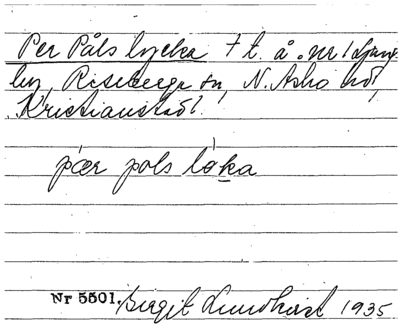 Per Påls lycka † t. å. nr 1 Ljung-
by, Riseberga sn, N. Åsbo hd,
Kristianstads l.
pær pɑls lỏka
Nr 5501. Birgit Lundkvist 1935